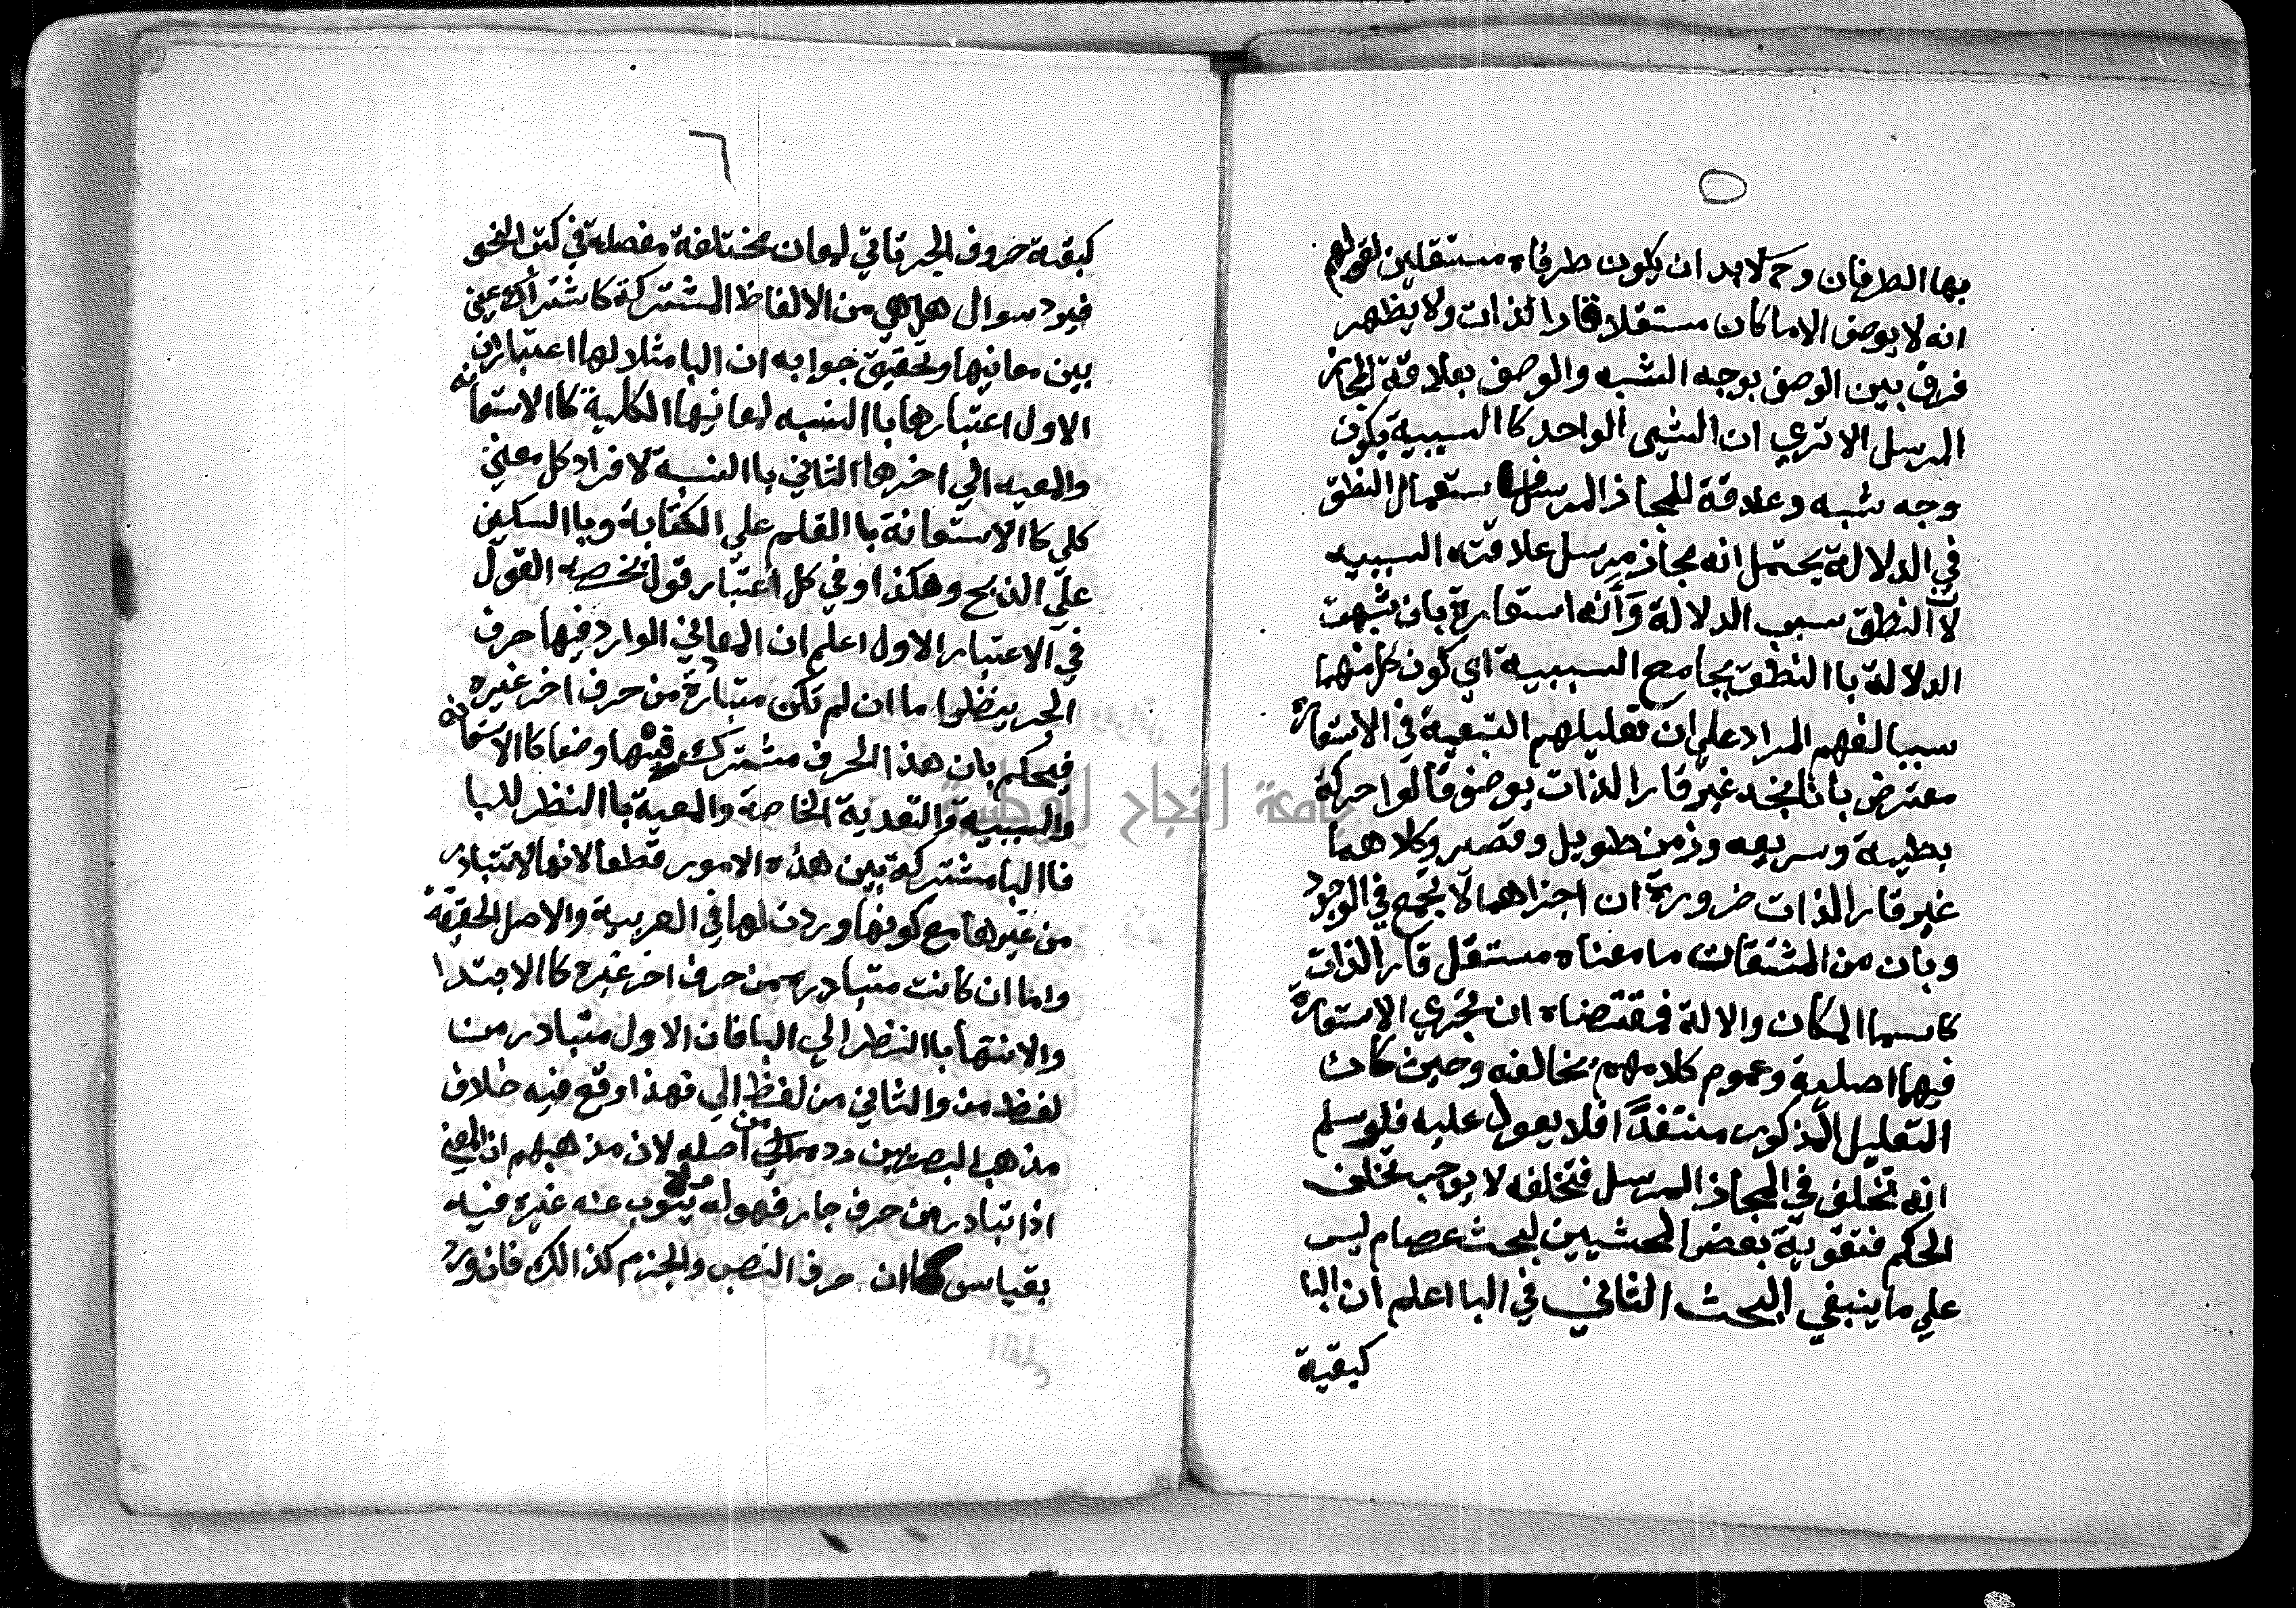 ٥
بها الطرفان وح لابد ان يكون طرفاه مستقلين لقولهم
انه لا يوصف الا ما كان مستقلا قارا لذات ولا يظهر
فرق بين الوصف بوجه الشبه والوصف بعلاقة المجاز
المرسل الا تري ان الشيى الواحد كا السببية يكون
وجه شبه وعلاقة للمجاز المرسل استعمال النطق
في الدلالة يحتمل انه مجاز مرسل علاقته السببيه
لان النطق سبب الدلالة وأنه استعارة بان شبهت
الدلالة با النطق بجامع السببية اي كون كل منهما
سببا لفهم المراد علي ان تعليلهم التبعية في الاستعارة
معترض بانا نجد غير قار الذات يوصف قالوا حركة
بطيه وسريعه وزمن طويل وقصير وكلاهما
غير قار الذات ضرورة ان اجزاهما لا تجمع في الوجود
وبان من المشتقات ما معناه مستقل قار الذات
كاسما المكان والالة فمقتضاه ان تجري الاستعارة
فيها اصلية وعموم كلامهم يخالفه وحين كان
التعليل المذكور منتقدا فلا يعول عليه فلو سلم
انه تخلف في المجاز المرسل فتخلفه لا يوجب تخلف
الحكم فتقوية بعض المحشيين لبحث عصام ليس
علي ما ينبغي البحث الثاني في البا اعلم ان البا
كبقية
٦
كبقية حروف الجر تاتي لمعان مختلفة مفصلة في كتب النحو
فيرد سوال هل هي من الالفاظ المشتركة كاشتراك عين
بين معانيها وتحقيق جوابه ان البا مثلا لها اعتباران
الاول اعتبارها با النسبه لمعانيها الكلية كا الاستعانه
والمعيه الي اخرها الثاني با النسبة لافراد كل معني
كلي كا الاستعانة با القلم علي الكتابة وبا السكين
علي الذبح وهكذا وفي كل اعتبار قول يخصه القول
في الاعتبار الاول اعلم ان المعاني الوارد فيها حرف
الجر ينظر اما ان لم تكن متبادرة من حرف اخر غيره
فيحكم بان هذا الحرف مشترك فيها وضعا كا الاستعانه
والسببية والتعدية الخاصة والمعية با النظر للبا
فا البا مشتركة بين هذه الامور قطعا لانها لا تتبادر
من غيرها مع كونها وردت لها في العربية والاصل الحقيقة
واما ان كانت متبادرة من حرف اخر غيره كا الابتدا
والانتها با النظر الي البا فان الاول متبادر من
لفظ من والثاني من لفظ الي فهذا وقع فيه خلاف
مذهب البصريين رده الي اصله لان مذهبهم ان المعني
اذا تبادر من حرف جار فهو له ينوب عنه غيره فيه
بقياس كما ان حرف النصب والجزم كذالك فان ورد
جامعة النجاح الوطنية